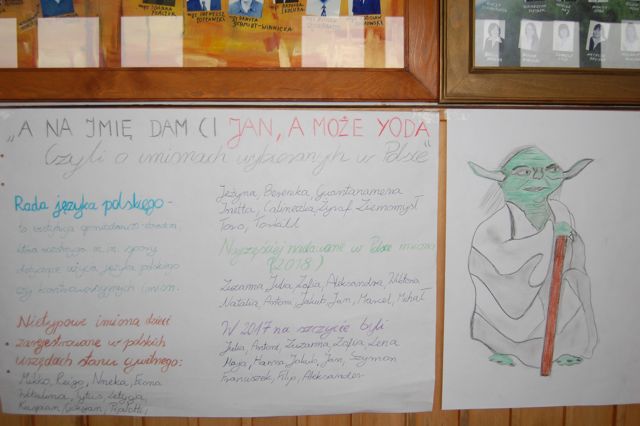 „A NA IMIĘ DAM CI JAN, A MOŻE YODA”
Czyli o imionach wybieranych w Polsce”
Rada języka polskiego -
to instytucja
która rozstrzyga m. in. spory
dotyczące użycia języka polskiego
czy kontrowersyjnych imion.
Nietypowe imiona dzieci
zarejestrowane w polskich
urzędach stanu cywilnego:
Mikko, Raigo, Nneka,
Wilhelmina, Tytus, Letycja,
Kaspian,
Jeżyna, Bożenka, Guantanamera
Inetta, Calineczka, Żyraf, Ziemomysł
Tovo, Tovald
Najczęściej nadawane w Polsce imiona
(2018)
Zuzanna, Julia, Zofia, Aleksandra, Wiktoria
Natalia, Antoni, Jakub, Jan, Marcel, Michał
W 2017 na szczycie byli
Julia, Antoni, Zuzanna, Zofia, Lena
Maja, Hanna, Jakub, Jan, Szymon
Franciszek, Filip, Aleksander